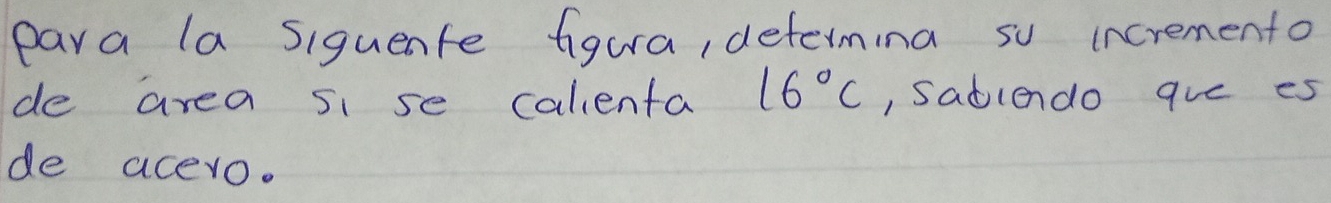 para la siguente figura, determina su incremento
de área si se calienta 16°C, sabiendo que es
de acero.